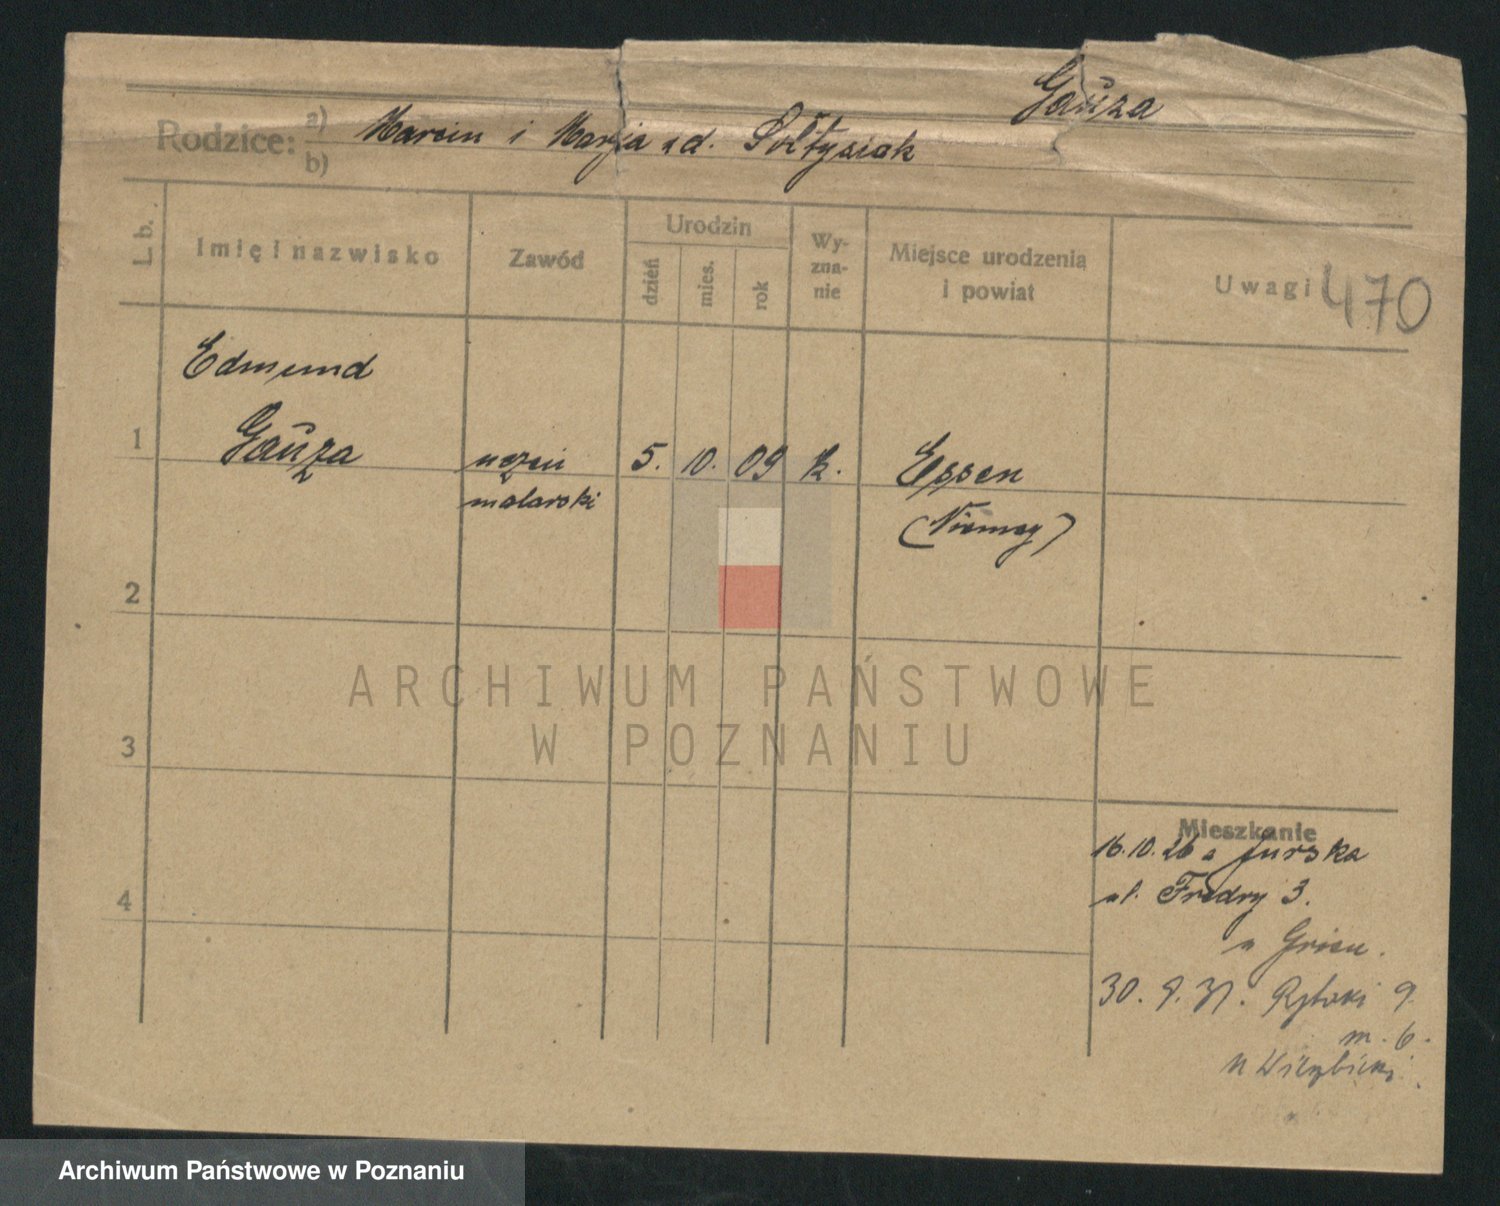 Gauza
Rodzice: a) Marcin i Marja zd. Sołtysiak
b)
L. b.
Imię i nazwisko
Zawód
Urodzin
dzień
mies.
rok
Wy-
zna-
nie
Miejsce urodzenia
i powiat
Uwagi 470
Edmund
1 Gauza uczeń 5. 10. 09 k. Essen
malarski (Niemcy)
2
ARCHIWUM PAŃSTWOWE
W POZNANIU
3
Mieszkanie
16.10.26 z Jurska
4 ul. Fredry 3.
u
30. 9. 31. Rybaki 9
m. 6.
u
Archiwum Państwowe w Poznaniu